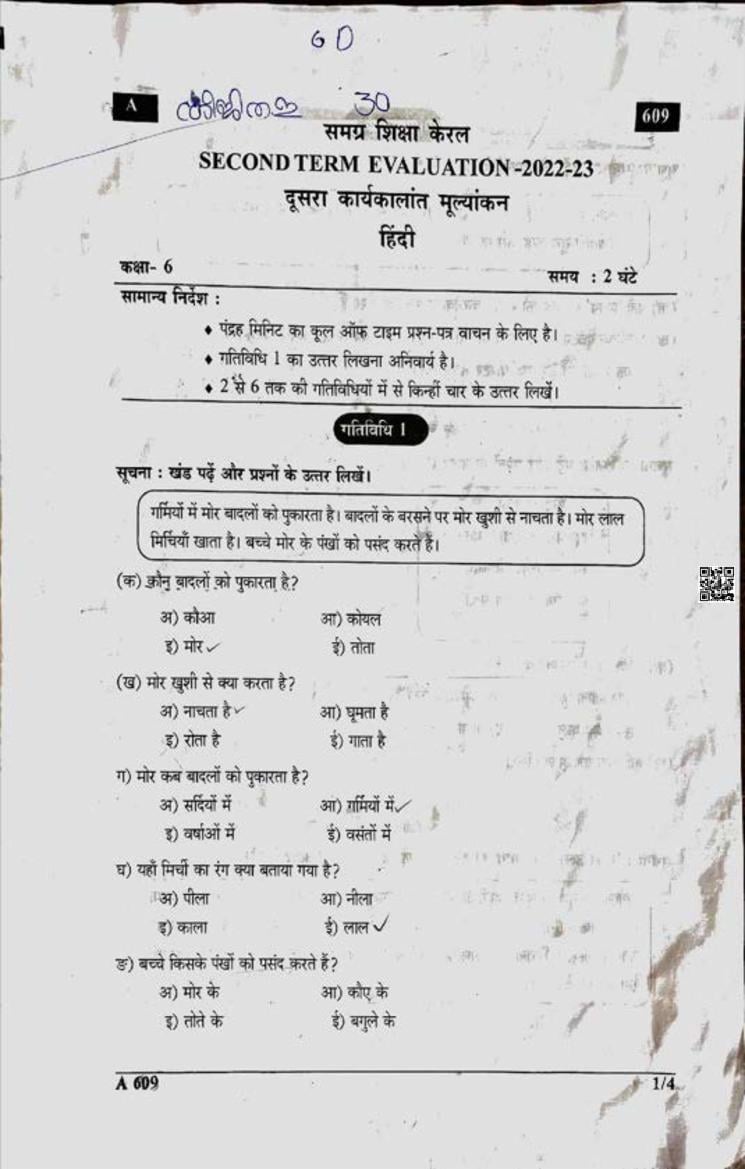 6D
A
30
609
समग्र शिक्षा केरल
SECOND TERM EVALUATION -2022-23
दूसरा कार्यकालांत मूल्यांकन
हिंदी
कक्षा- 6
समय : 2 घंटे
सामान्य निर्देश :
♦ पंद्रह मिनिट का कूल ऑफ टाइम प्रश्न-पत्र वाचन के लिए है।
♦ गतिविधि 1 का उत्तर लिखना अनिवार्य है।
♦ 2 से 6 तक की गतिविधियों में से किन्हीं चार के उत्तर लिखें।
गतिविधि 1
सूचना : खंड पढ़ें और प्रश्नों के उत्तर लिखें।
गर्मियों में मोर बादलों को पुकारता है। बादलों के बरसने पर मोर खुशी से नाचता है। मोर लाल
मिर्चियाँ खाता है। बच्चे मोर के पंखों को पसंद करते हैं।
(क) कौन बादलों को पुकारता है?
अ) कौआ आ) कोयल
इ) मोर ✓ ई) तोता
(ख) मोर खुशी से क्या करता है?
अ) नाचता है ✓ आ) घूमता है
इ) रोता है ई) गाता है
ग) मोर कब बादलों को पुकारता है?
अ) सर्दियों में आ) गर्मियों में ✓
इ) वर्षाओं में ई) वसंतों में
घ) यहाँ मिर्ची का रंग क्या बताया गया है?
अ) पीला आ) नीला
इ) काला ई) लाल ✓
ङ) बच्चे किसके पंखों को पसंद करते हैं?
अ) मोर के आ) कौए के
इ) तोते के ई) बगुले के
A 609
1/4